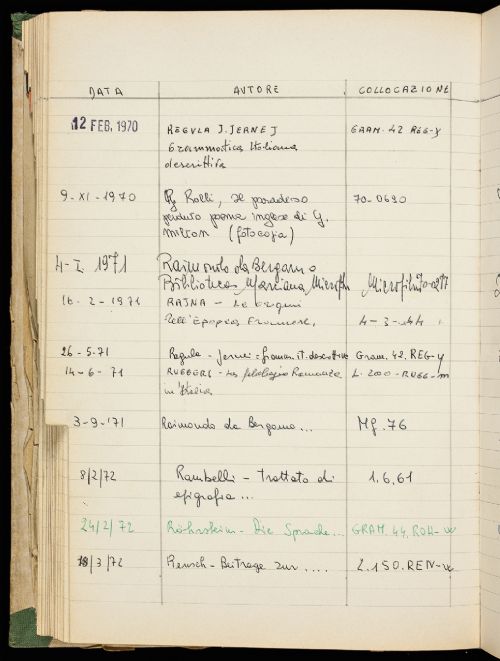 DATA AUTORE COLLOCAZIONE
12 FEB. 1970 REGULA J. JERNEJ GRAM. 42 REG-y
Grammatica Italiana
descrittiva
9-XI-1970 Rolli, Il paradiso 70-0690
perduto poema inglese di G.
Milton (fotocopia)
4-I. 1971 Raimondo da Bergamo
Biblioteca Marciana Microfilm Microfilm
16-2-1971 RAJNA - Le origini
dell'Epopea Francese, 4-3-44
26-5-71 Regula - Jernej: gramm. it. descrittiva Gram. 42. REG-y
14-6-71 RUGGERI - La filologia Romanza L. 200-RUGG-m
in Italia
3-9-'71 Raimondo da Bergamo... Mf. 76
8/2/72 Rambelli - trattato di 1.6.61
epigrafia...
24/2/72 Die Sprache... GRAM. 44. ROH-w
18/3/72 Rensch - Beitrage zur .... 2.150.REN-w